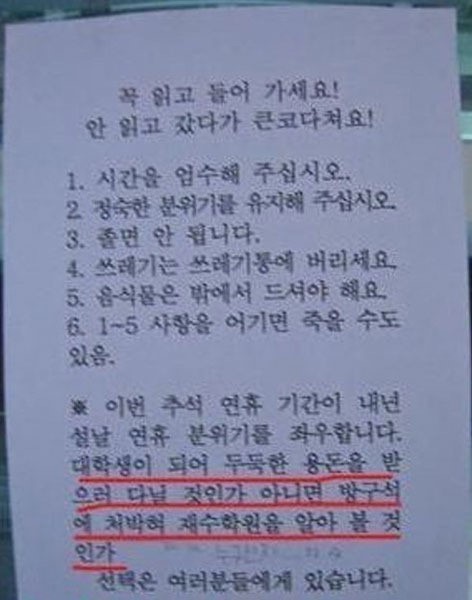 꼭 읽고 들어 가세요!
안 읽고 갔다가 큰코다쳐요!
1. 시간을 엄수해 주십시오.
2. 정숙한 분위기를 유지해 주십시오.
3. 졸면 안 됩니다.
4. 쓰레기는 쓰레기통에 버리세요.
5. 음식물은 밖에서 드셔야 해요.
6. 1~5 사항을 어기면 죽을 수도
있음.
※ 이번 추석 연휴 기간이 내년
설날 연휴 분위기를 좌우합니다.
대학생이 되어 두둑한 용돈을 받
으러 다닐 것인가 아니면 방구석
에 처박혀 재수학원을 알아 볼 것
인가
선택은 여러분들에게 있습니다.